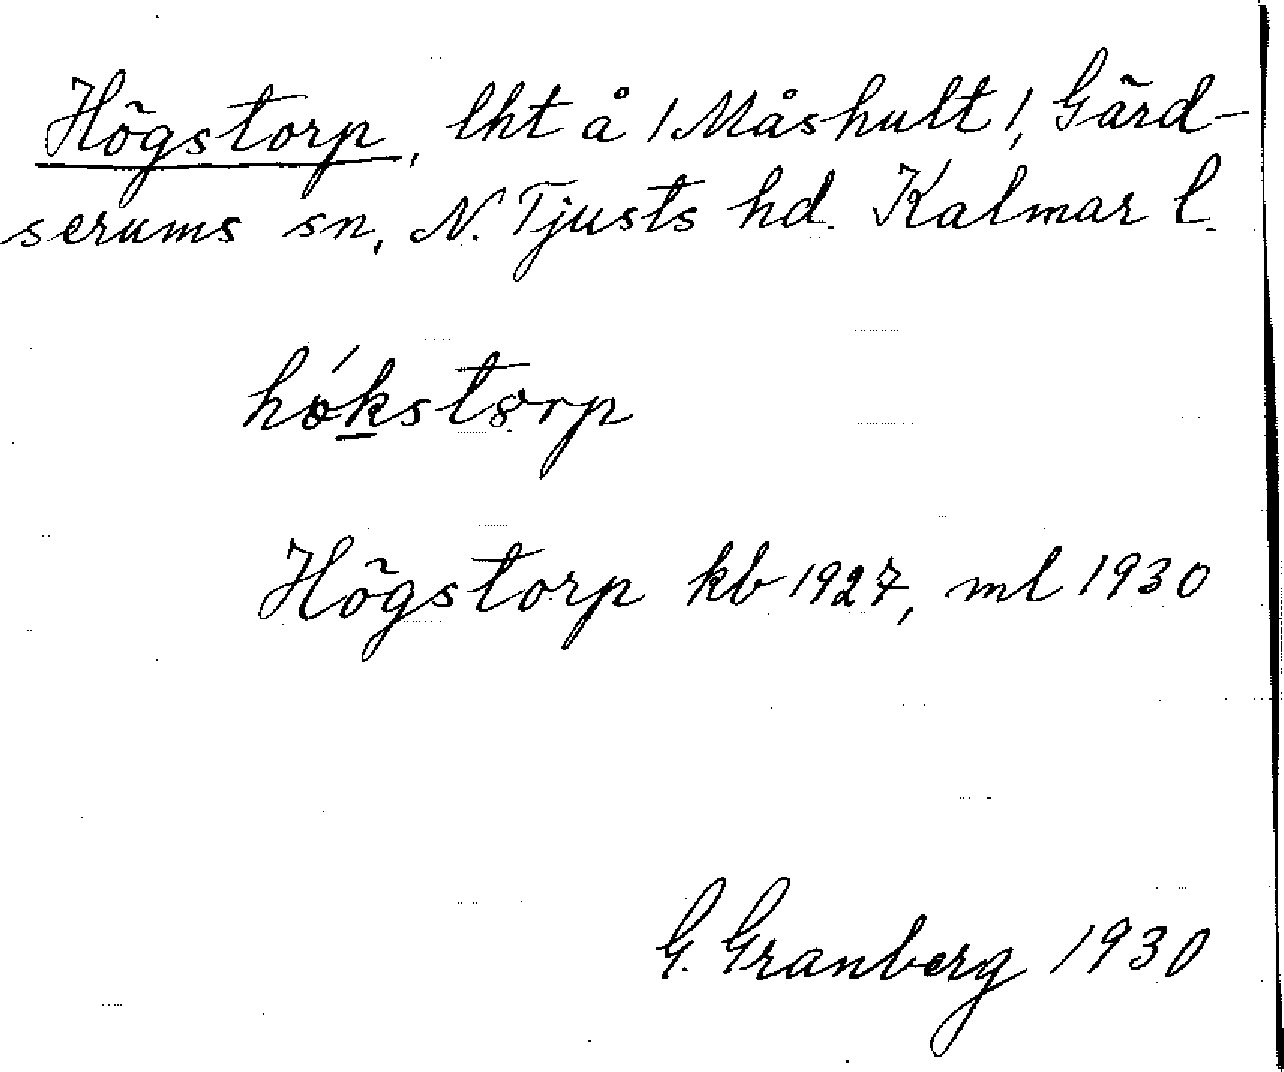 Högstorp, lht å /Måshult/, Gärd-
serums sn, N. Tjusts hd. Kalmar l.
hǿkstorp
Högstorp kb 1927, ml 1930
G. Granberg 1930